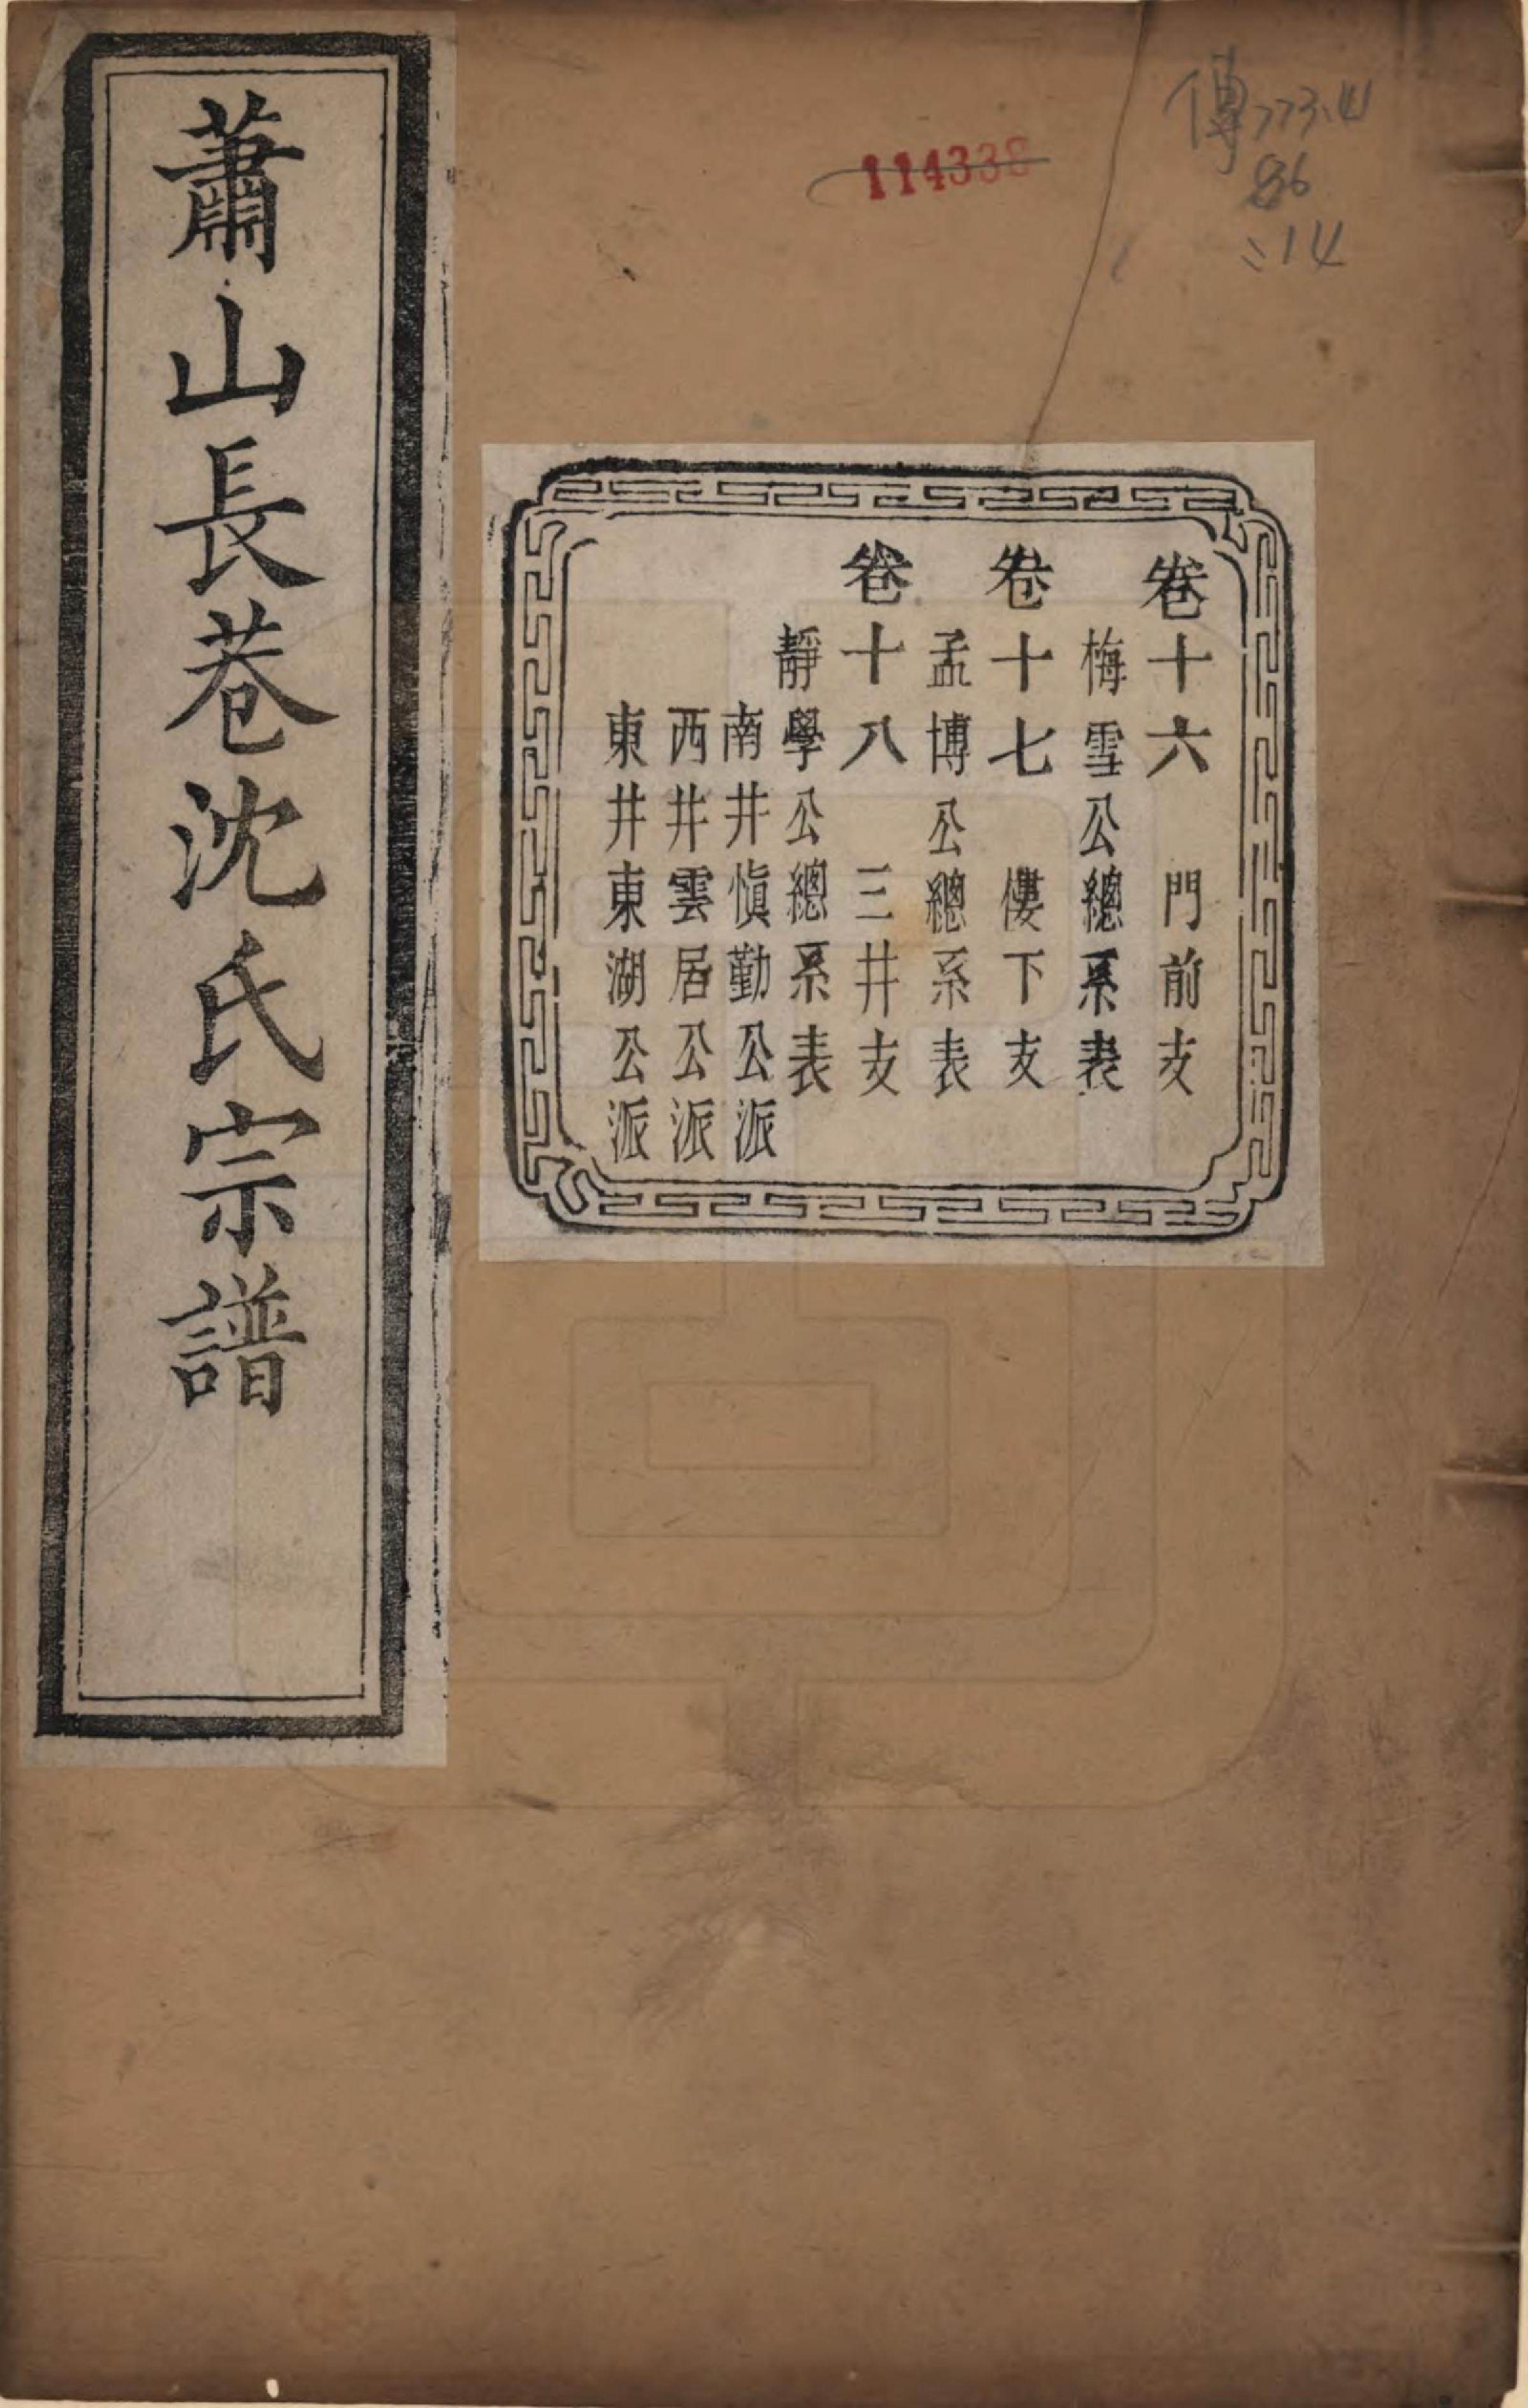 蕭山長巷沈氏宗譜
卷十六 門前支
梅雪公總系表
卷十七 僂下支
孟博公總系表
卷十八 三井支
靜學公總系表
南井慎勤公派
西井雲居公派
東井東湖公派
114338
傳773.4
86
:14